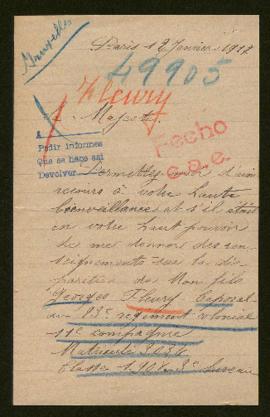 Bruxelles
Paris 12 Janvier 1917
49905
Fleury
Majesté
A
Pedir informes
Que se haga así
Devolver
Fecho
Permettez moi d'un
recours à votre haute
bienveillance et s'il était
en votre haut pouvoir
de me donner des ren-
seignements sur la dis-
parition de Mon fils
Georges Fleury Caporal
au 83e regiment colonial
11e compagnie
Matricule
Classe Bureau